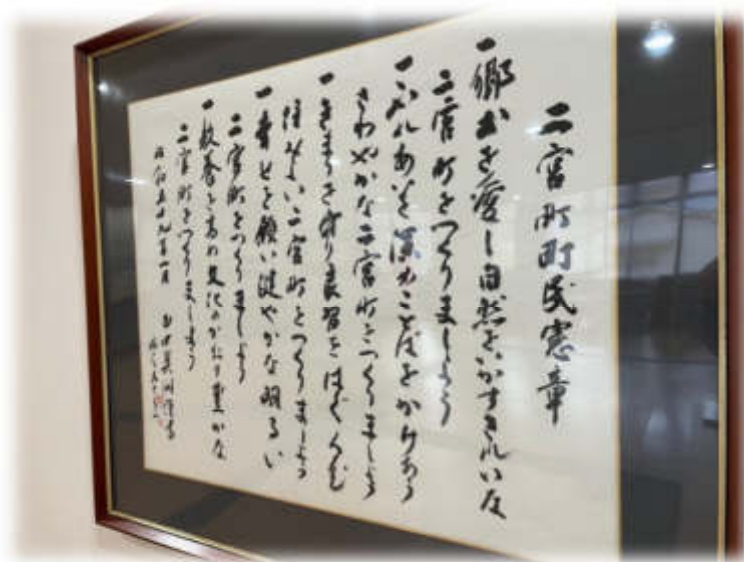 二宮町町民憲章
一郷土を愛し自然をいかすきれいな
二宮町をつくりましょう
一ふれあいを深めことばをかけあう
さわやかな二宮町をつくりましょう
一きまりを守り良習をはぐくむ
住みよい二宮町をつくりましょう
一幸せを願い健やかな明るい
二宮町をつくりましょう
一教養を高め文化のかおり豊かな
二宮町をつくりましょう
昭和五十九年一月